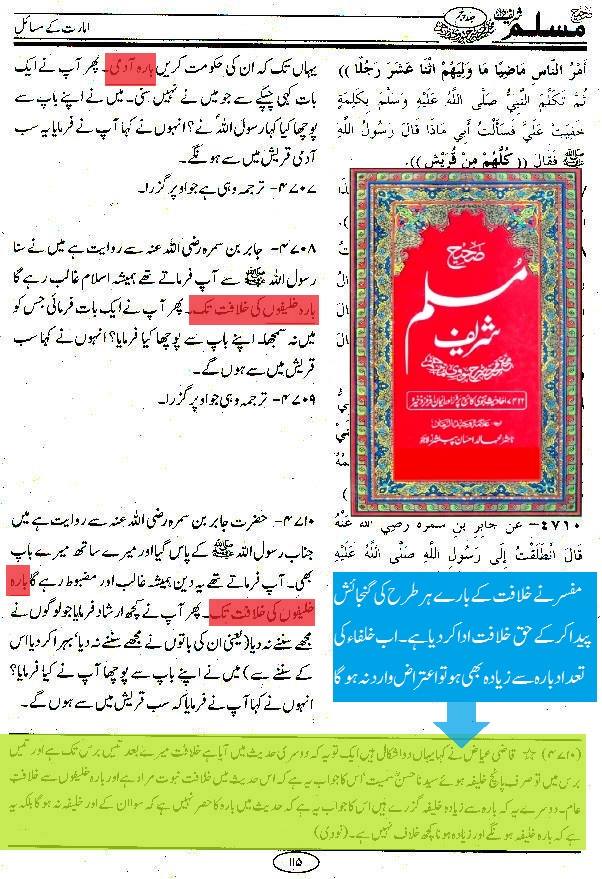 امارت کے مسائل
صحیح مسلم شریف
جلد پنجم
أَمْرُ النَّاسِ مَاضِيًا مَا وَلِيَهُمْ اثْنَا عَشَرَ رَجُلًا ))
ثُمَّ تَكَلَّمَ النَّبِيُّ صَلَّى اللَّهُ عَلَيْهِ وَسَلَّمَ بِكَلِمَةٍ
خَفِيَتْ عَلَيَّ فَسَأَلْتُ أَبِي مَاذَا قَالَ رَسُولُ اللَّهِ
ﷺ فَقَالَ (( كُلُّهُمْ مِنْ قُرَيْشٍ )).
یہاں تک کہ ان کی حکومت کریں بارہ آدمی۔ پھر آپ نے ایک
بات کہی چپکے سے جو میں نے نہیں سنی۔ میں نے اپنے باپ سے
پوچھا کیا کہا رسول اللہؐ نے؟ انہوں نے کہا آپ نے فرمایا یہ سب
آدمی قریش میں سے ہونگے۔
۴۷۰۷- ترجمہ وہی ہے جو اوپر گزرا۔
۴۷۰۸- جابر بن سمرہ رضی اللہ عنہ سے روایت ہے میں نے سنا
رسول اللہ ﷺ سے آپ فرماتے تھے ہمیشہ اسلام غالب رہے گا
بارہ خلیفوں کی خلافت تک۔ پھر آپ نے ایک بات فرمائی جس کو
میں نہ سمجھا۔ اپنے باپ سے پوچھا کیا فرمایا؟ انہوں نے کہا سب
قریش میں سے ہوں گے۔
۴۷۰۹- ترجمہ وہی جو اوپر گزرا۔
صحیح
مسلم
شریف
۴۷۱۰- حضرت جابر بن سمرہ رضی اللہ عنہ سے روایت ہے میں
جناب رسول اللہ ﷺ کے پاس گیا اور میرے ساتھ میرے باپ
بھی۔ آپ فرماتے تھے یہ دین ہمیشہ غالب اور مضبوط رہے گا بارہ
خلیفوں کی خلافت تک۔ پھر آپ نے کچھ ارشاد فرمایا جو لوگوں نے
مجھے سننے نہ دیا (یعنی ان کی باتوں نے مجھے سننے نہ دیا، بہرا کر دیا اس
کے سننے سے) میں نے اپنے باپ سے پوچھا آپ نے کیا فرمایا؟
انہوں نے کہا آپ نے فرمایا کہ سب قریش میں سے ہوں گے۔
۴۷۱۰- عَنْ جَابِرِ بنِ سَمُرَةَ رَضِيَ اللهُ عَنْهُ
قَالَ انْطَلَقْتُ إِلَى رَسُولِ اللَّهِ صَلَّى اللَّهُ عَلَيْهِ
مفسر نے خلافت کے بارے ہر طرح کی گنجائش
پیدا کر کے حق خلافت ادا کر دیا ہے۔ اب خلفاء کی
تعداد بارہ سے زیادہ بھی ہو تو اعتراض وارد نہ ہو گا
(۴۷۱۰) ☆ قاضی عیاض نے کہا یہاں دو اشکال ہیں ایک تو یہ کہ دوسری حدیث میں آیا ہے خلافت میرے بعد تیس برس تک ہے اور تیس
برس میں تو صرف پانچ خلیفہ ہوئے سیدنا حسن سمیت، اس کا جواب یہ ہے کہ اس حدیث میں خلافت نبوت مراد ہے اور بارہ خلیفوں سے خلافت
عام۔ دوسرے یہ کہ بارہ سے زیادہ خلیفہ گزرے ہیں اس کا جواب یہ ہے کہ حدیث میں بارہ کا حصر نہیں ہے کہ سوا ان کے اور خلیفہ نہ ہوگا بلکہ یہ
ہے کہ بارہ خلیفہ ہونگے اور زیادہ ہونا کچھ خلاف نہیں ہے۔ (نووی)
۱۱۵